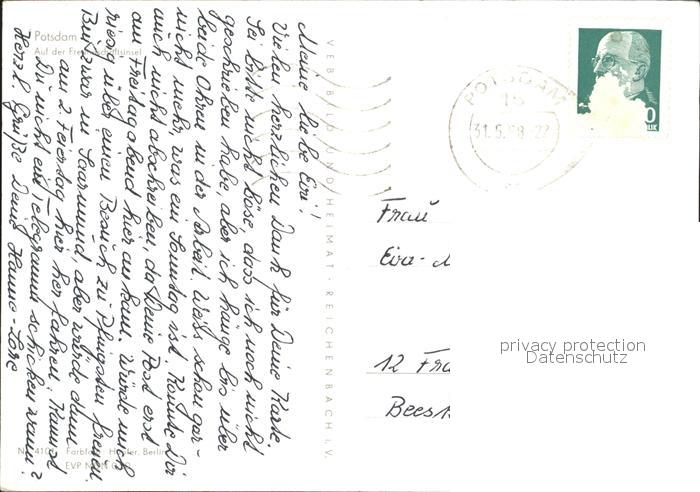 Potsdam
Auf der Freundschaftsinsel
Meine liebe Evi!
Vielen herzlichen Dank für Deine Karte.
Sei bitte nicht böse, dass ich noch nicht
geschrieben habe, aber ich hänge bis über
beide Ohren in der Arbeit. Weiß schon gar-
nicht mehr, was ein Sonntag ist. Konnte Dir
auch nicht abschreiben, da Deine Post erst
am Freitagabend hier an kam. Würde mich
riesig über einen Besuch zu Pfingsten freuen.
Bin zwar in Saarmund, aber würde dann
am 2. Feiertag hier her fahren. Kannst
Du nicht ein Telegramm schicken wann?
Herzl. Grüße Deine Hanne-Lore
VEB BILD UND HEIMAT · REICHENBACH I. V.
POTSDAM
15
31.5.68-22
Frau
Eva-
12 Fra
Bees
privacy protection
Datenschutz
Farbfoto: Höfer, Berlin
EVP